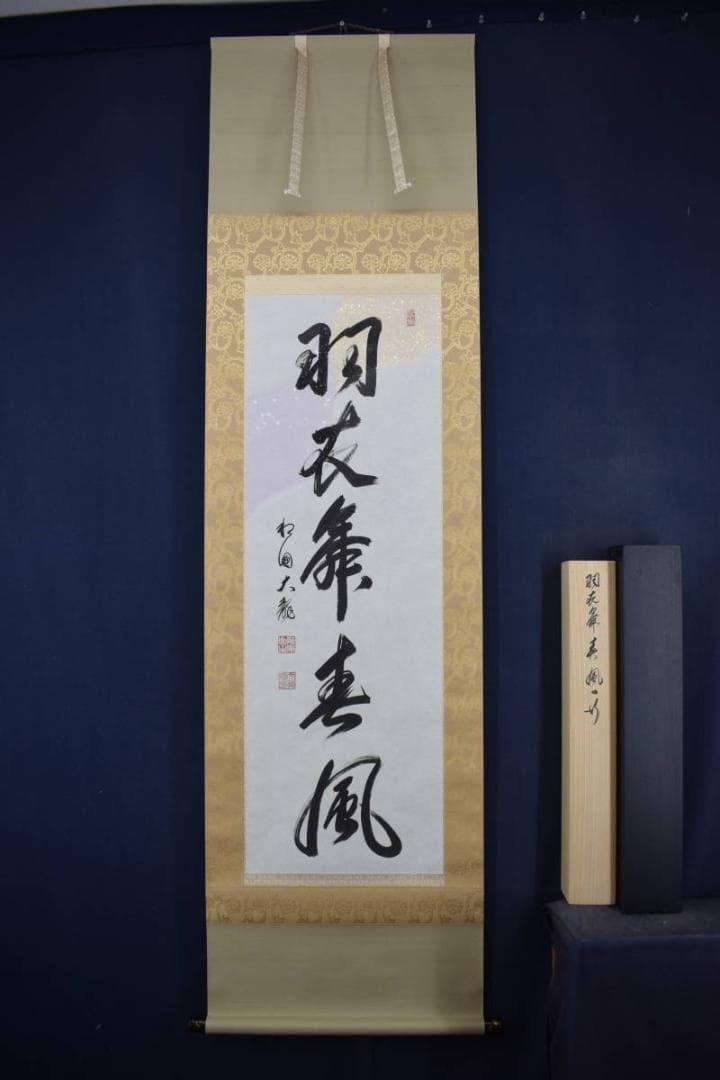 羽衣舞春風
相国大龍
羽衣舞春風一行